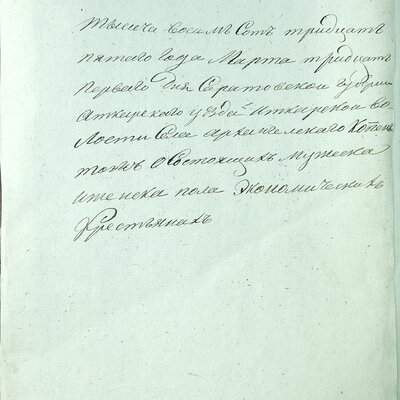 тысяча восемь сотъ тридцать
пятого года Марта тридцать
первого дня Саратовской губерни
Аткарского уезда Аткарской во
лости села Архангелского
тожъ о состоящихъ мужеска
и женска пола экономическихъ
крестьянахъ